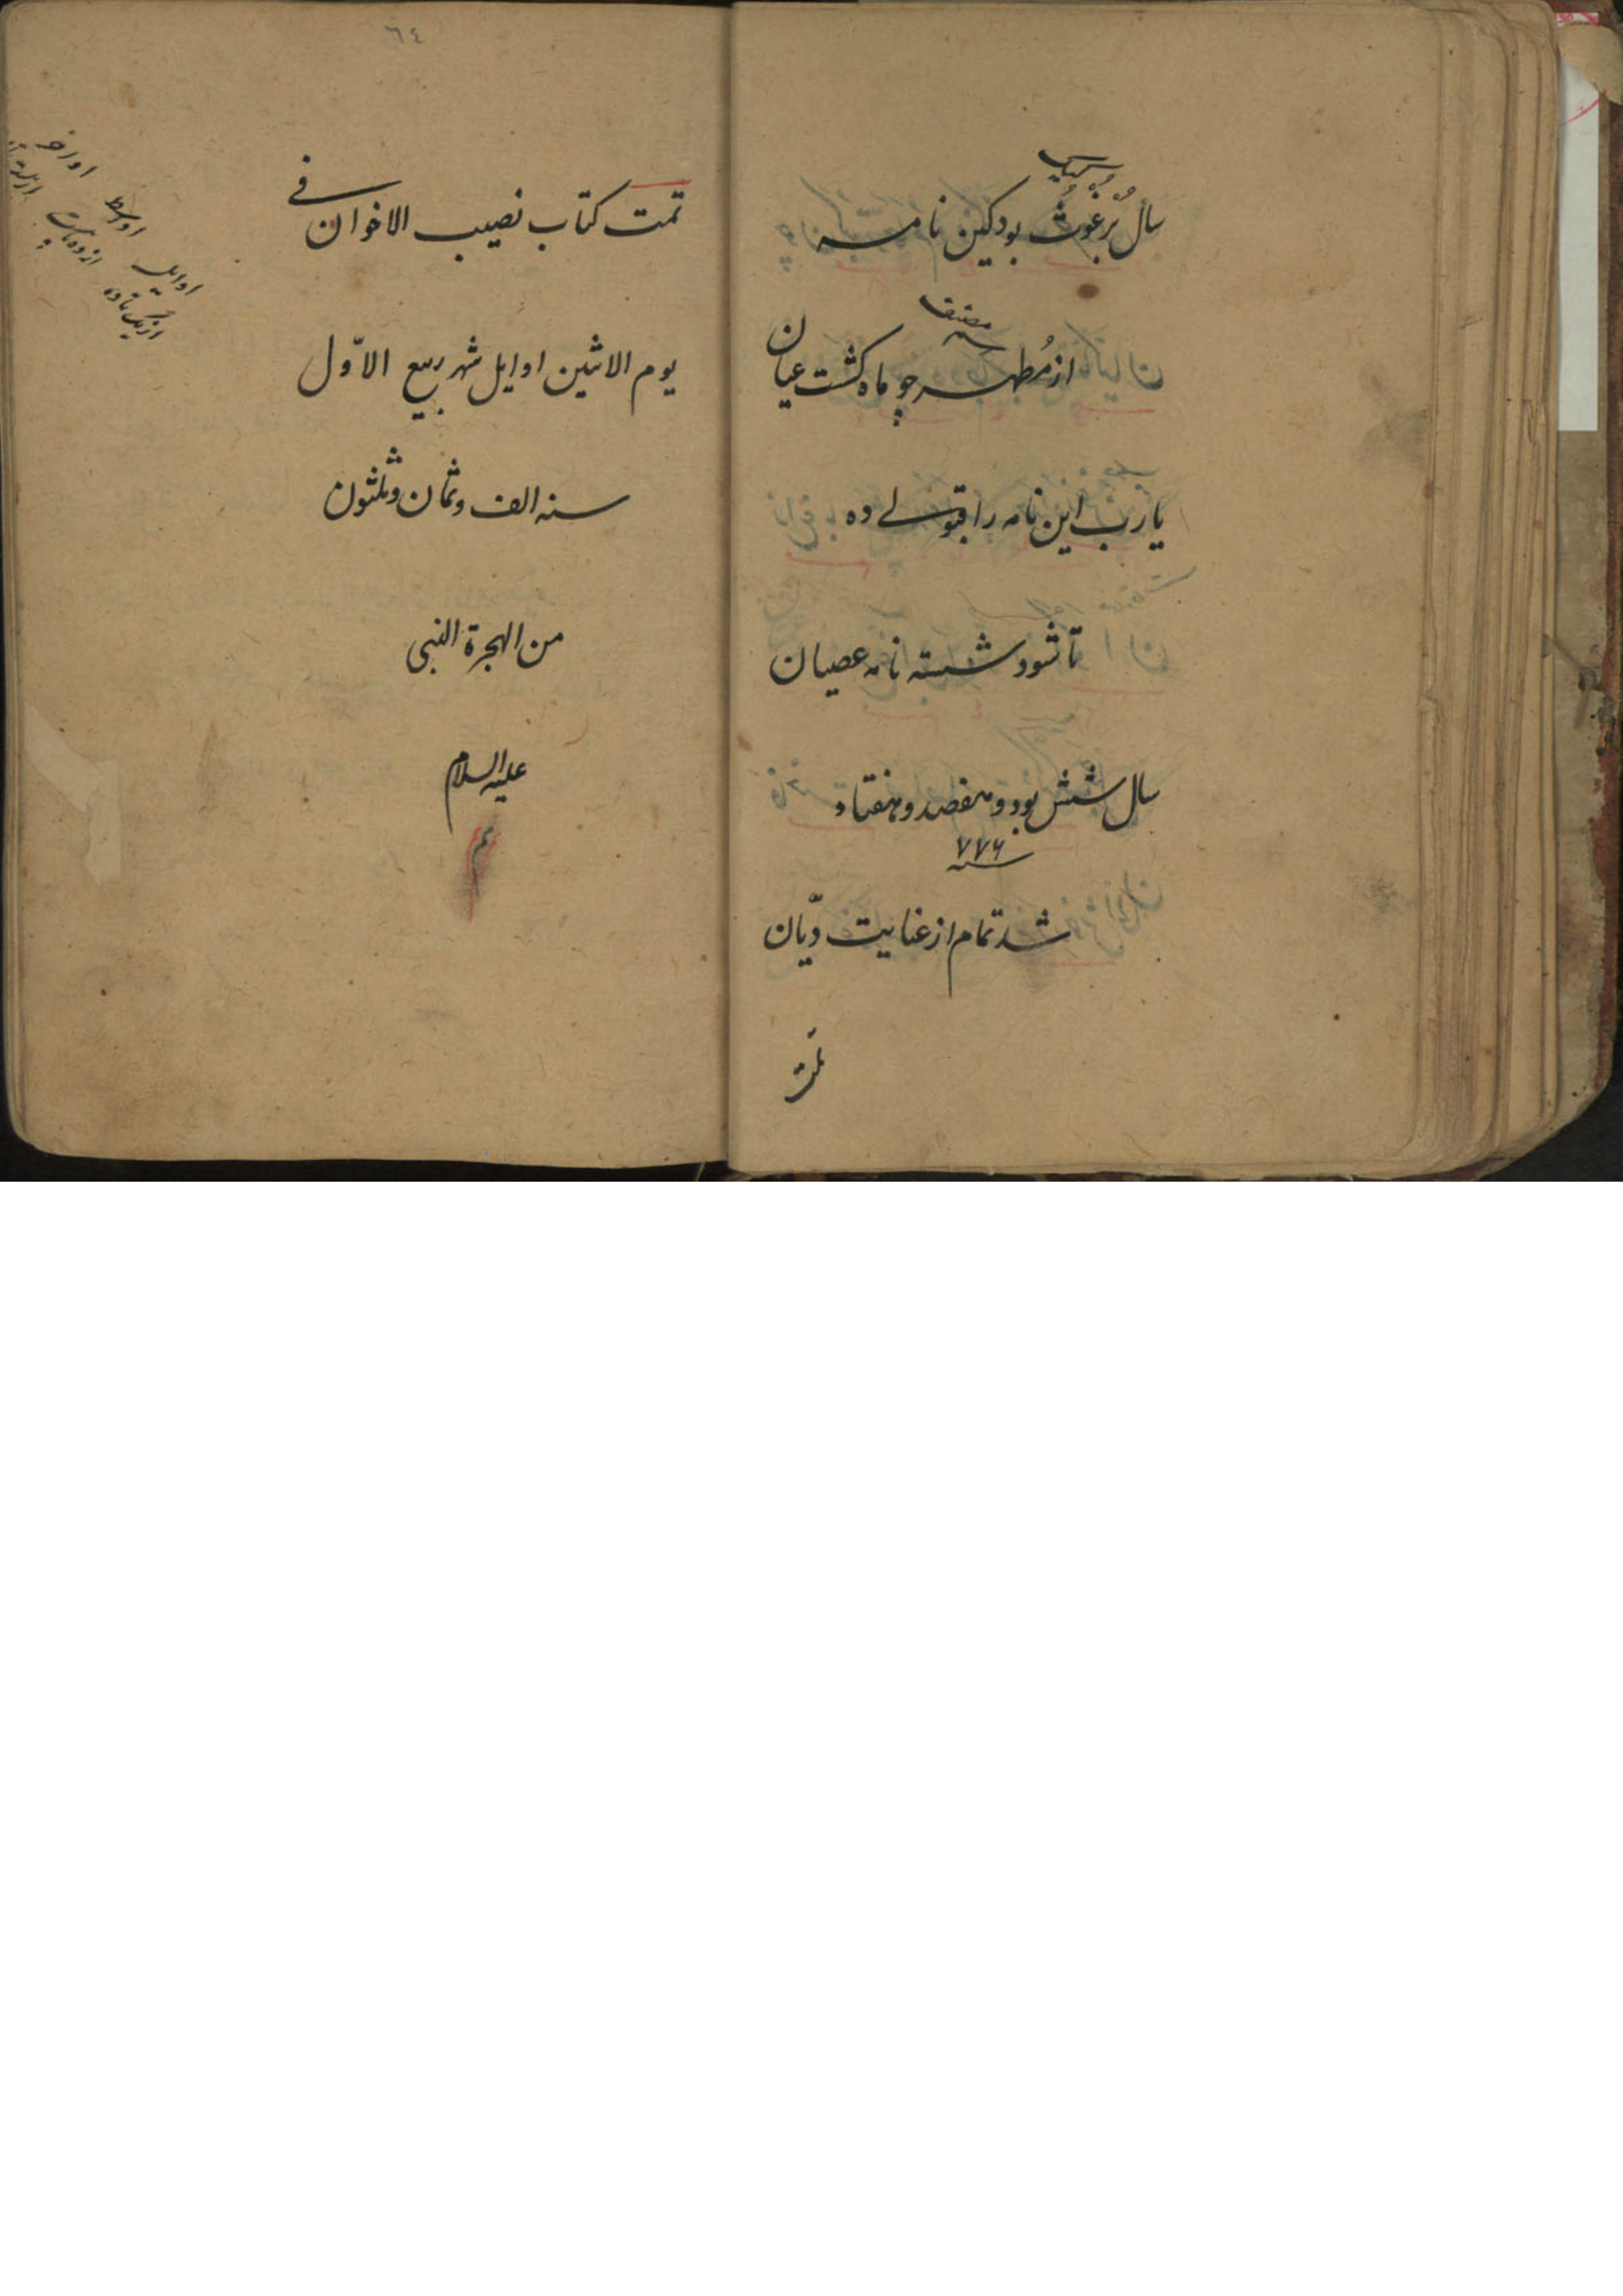 سال بُرغوث بود کین نامه
مصنف
از مُطهر چو ماه کشت عیان
یارب این نامه را قبولے ده
تا شود شسته نامه عصیان
سال شش بود و هفصد و هفتاد
سنه ۷۷۶
شد تمام از عنایت دیّان
تمت
٦٤
تمت کتاب نصیب الاخوان فی
یوم الاثنین اوایل شهر ربیع الاوّل
سنه الف وثمان وثلثون
من الهجرة النبی
علیه السلام
م
اوایل اوسط اواخر
از یک تا ده